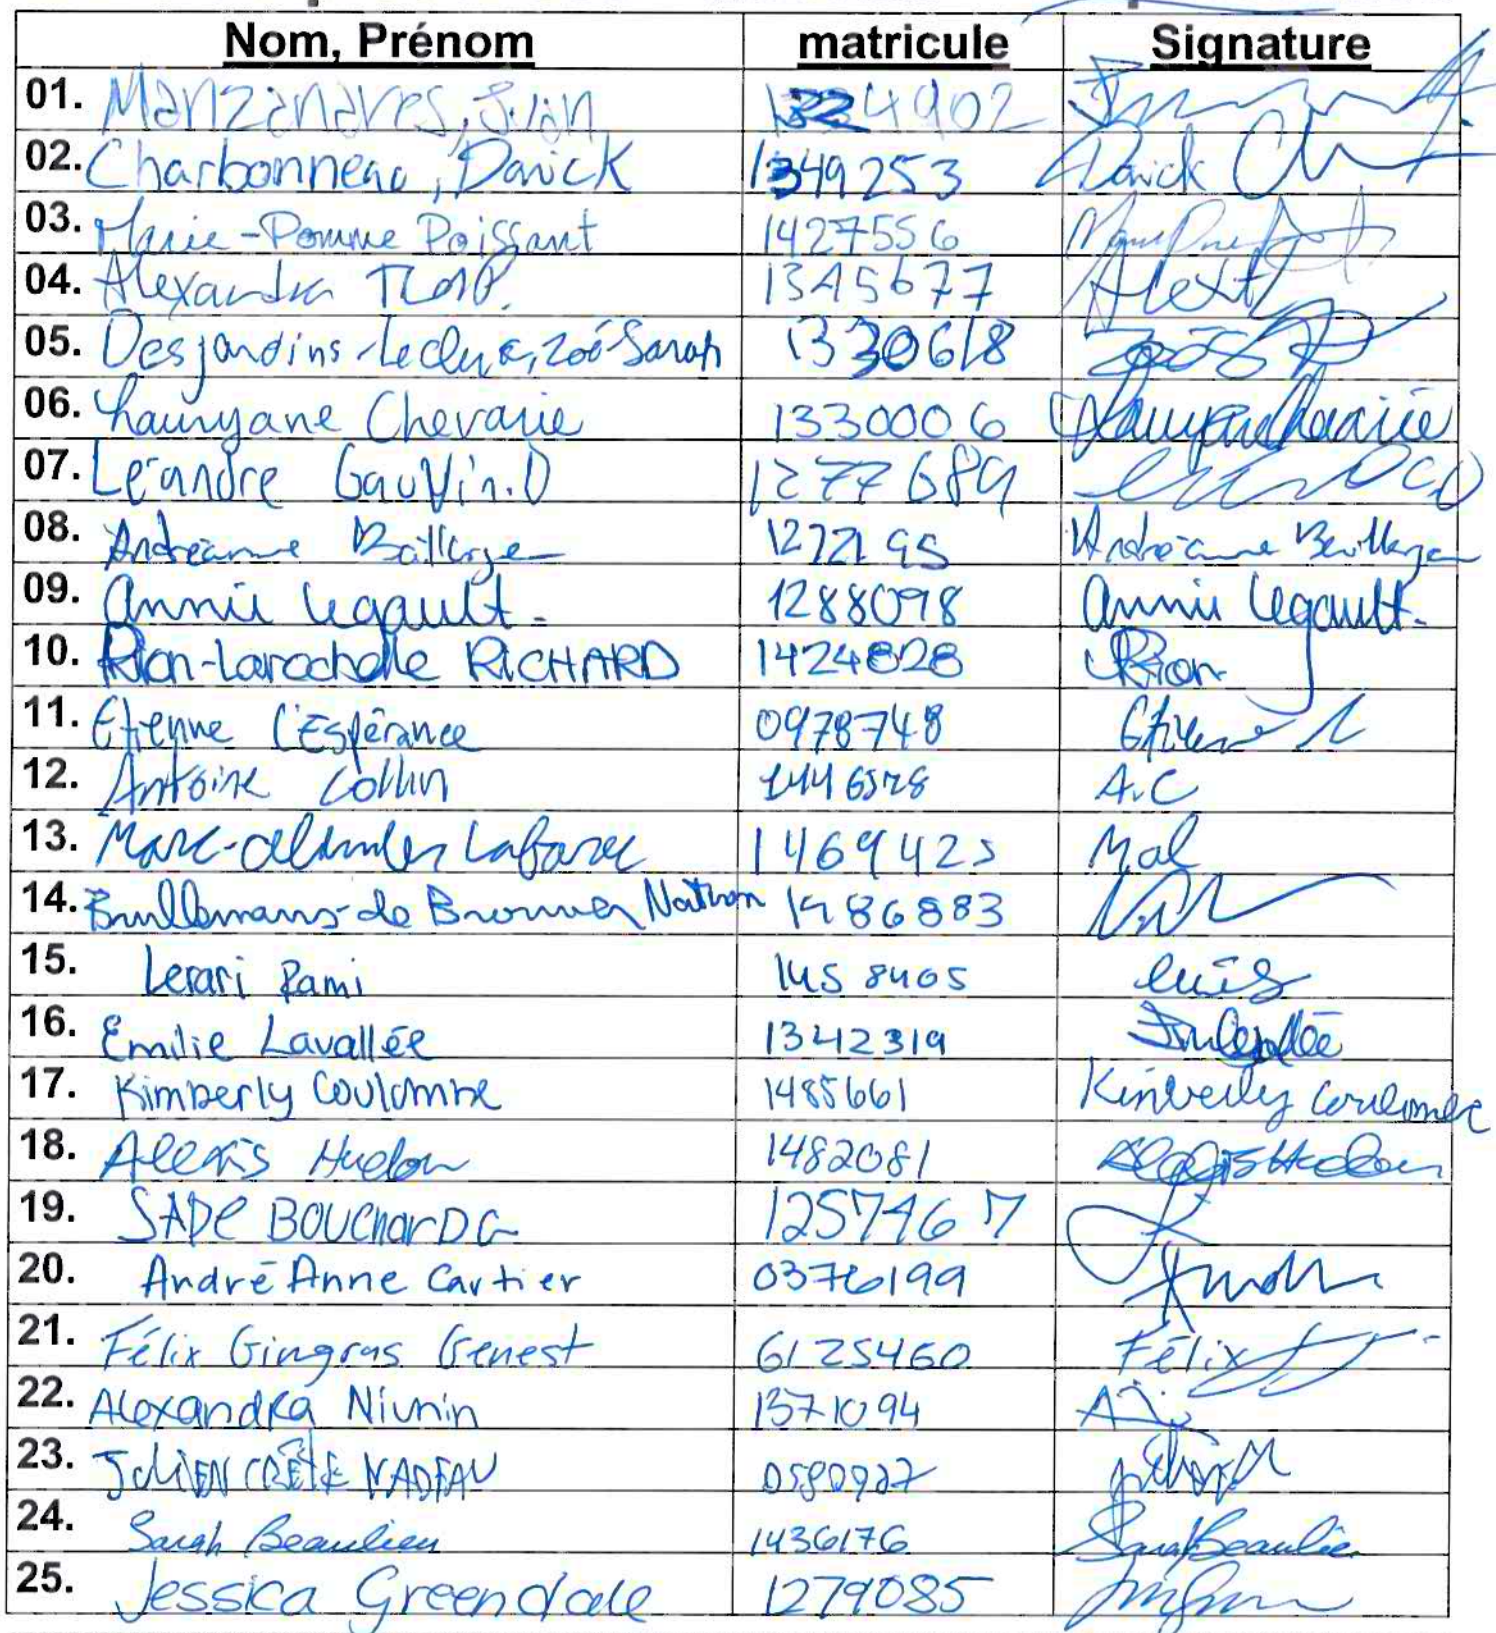 Nom, Prénom matricule Signature
01. Manzanares, Juan 1324902
02. Charbonneau, Darick 1349253 Darick Ch
03. Marie-Pomme Poissant 1427556
04. Alexandra 1345677 Alext
05. Desjardins-Leclerc, Zoé-Sarah 1330618
06. Lauryane Chevarie 1330006 Lauryane Chevarie
07. Léandre Gauvin.D 1277689
08. Andréanne Baillargeon 1272195 Andréanne Baillargeon
09. Annie Legault. 1288098 Annie Legault.
10. Rion-Larochelle RICHARD 1424828 Rion
11. Etienne L'Espérance 0978748 Etienne L
12. Antoine Collin 1446578 A.C
13. Marc-Alexandre 1469425 Mal
14. Brullemans-de Brouwer Nathan 1486883
15. Lerari Rami 1458405
16. Emilie Lavallée 1342319
17. Kimberly Coulombe 1485661 Kimberly Coulombe
18. Alexis Hudon 1482081 Alexis Hudon
19. SADE BOUCHARD G 1257467
20. André Anne Cartier 0376199
21. Félix Gingras Genest 6125460 Félix
22. Alexandra Niunin 1371094
23. JULIEN CRÊTE NADEAU 0580927
24. Sarah Beaulieu 1436176 Sarah Beaulieu
25. Jessica Greendale 1279085